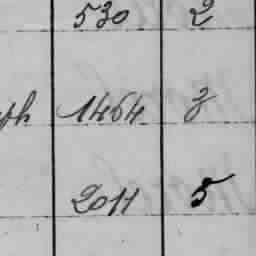 530 2
1464 3
2011 5